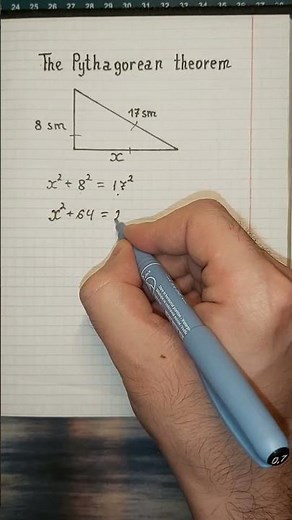 24 25 26 27 28 29 30 31 32 33 34 35 36
The Pythagorean theorem
17 sm
8 sm
x
x² + 8² = 17²
x² + 64 = 2
0.7